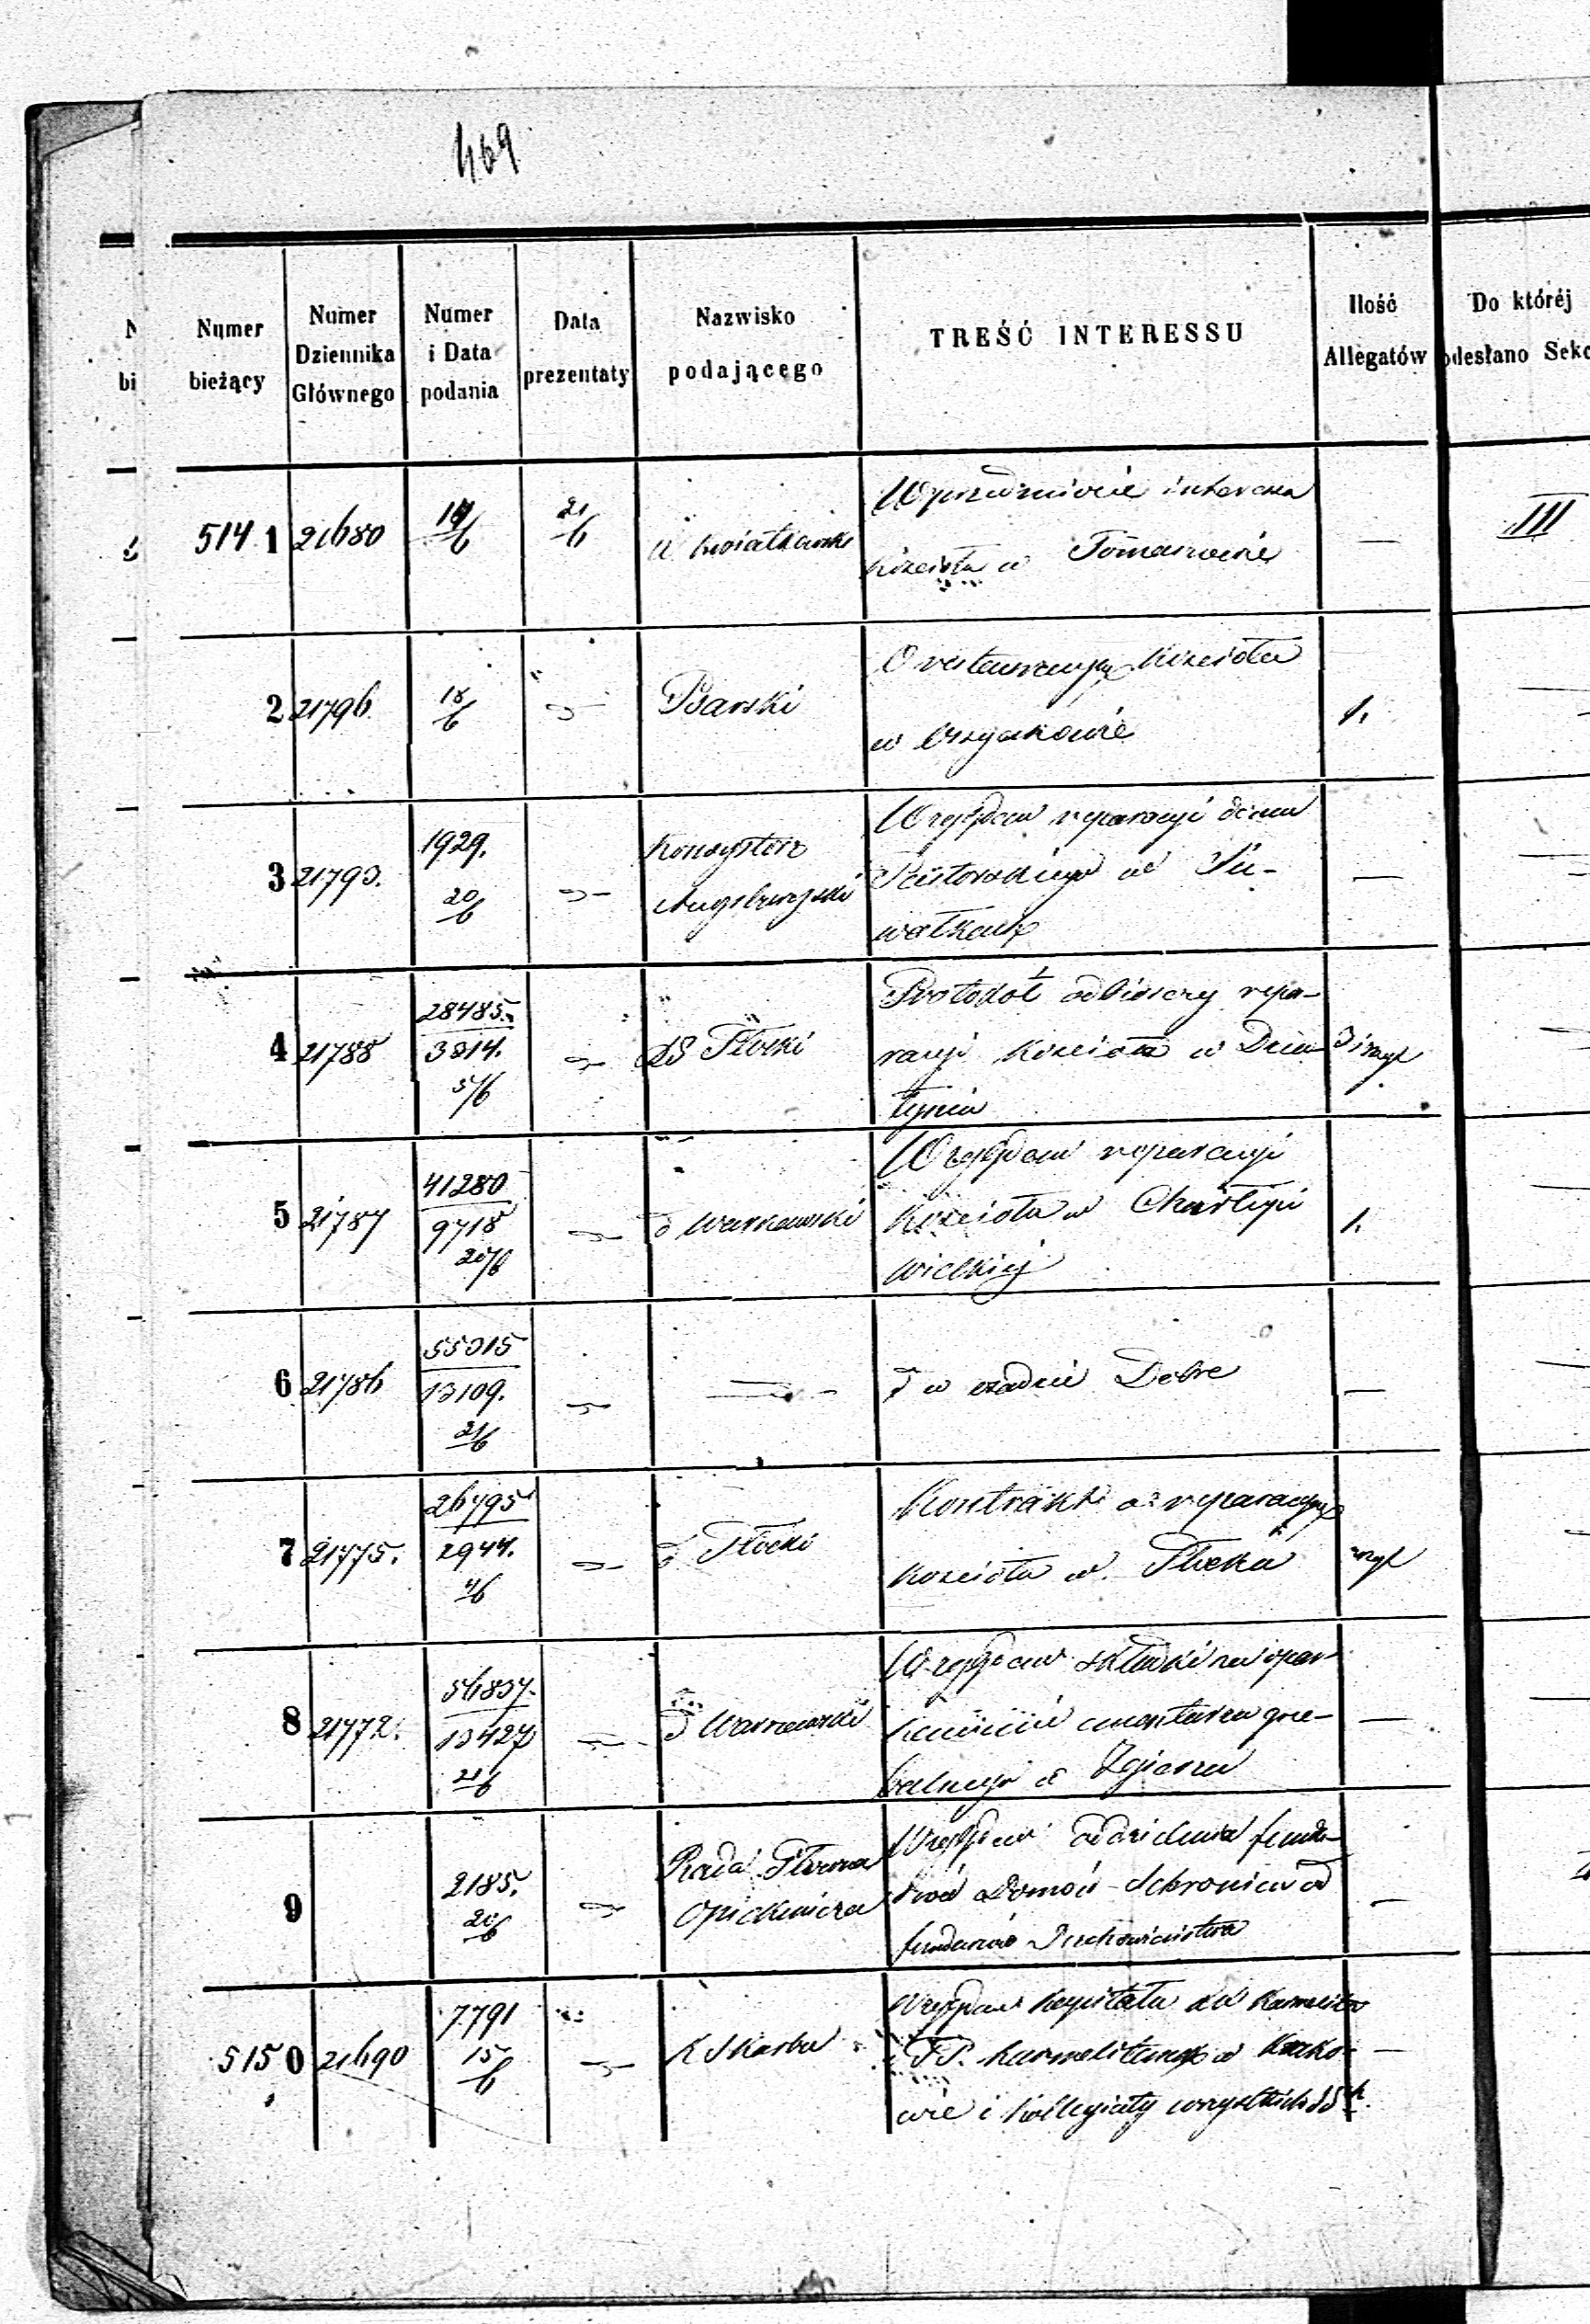 469
Numer bieżący
Numer Dziennika Głównego
Numer i Data podania
Data prezentaty
Nazwisko podającego
TREŚĆ INTERESSU
Ilość Allegatów
Do któréj
odesłano Sekc
5141 21680 21/6 Kwiatkowski
W przedmiocie interesu
Kościoła w Tomaszowie
— III
2 21796 18/6 Barski
O restauracyą Kościoła
w
1.
3 21793. 1929. 20/6
Konsystorz
Augsburgski
Względem reparacyi domu
Pastorskiego w Su-
wałkach
—
4 21788 28485. 3814. 5/6 Płocki
Protokół odbiorczy repa-
racyi Kościoła w
3 i
5 21787 41280 9718 20/6 d Warszawski
Względem reparacyi
Kościoła w
wielkiej
1.
6 21786 55315 13109. 21/6 —
d w Dobre
—
7 21775. 26795 2944. 4/6 d Płocki
Kontrakt o reparacyą
kościoła w. Płocku
8 21772. 56837. 13427 21/6 d Warszawski
Względem składki na opar-
kanienie cmentarza grze-
balnego w Zgierzu
—
9 2185. 20/6
Rada Główna
Opiekuńcza
Względem oddzielenia fundu-
szów Domów Schronienia od
funduszów Duchowieństwa
—
5150 21690 7791 15/6 K Skarbu
Względem kapitału
PP. Karmelitanek w Krako-
wie i Kollegiaty wszystkich SSch
—